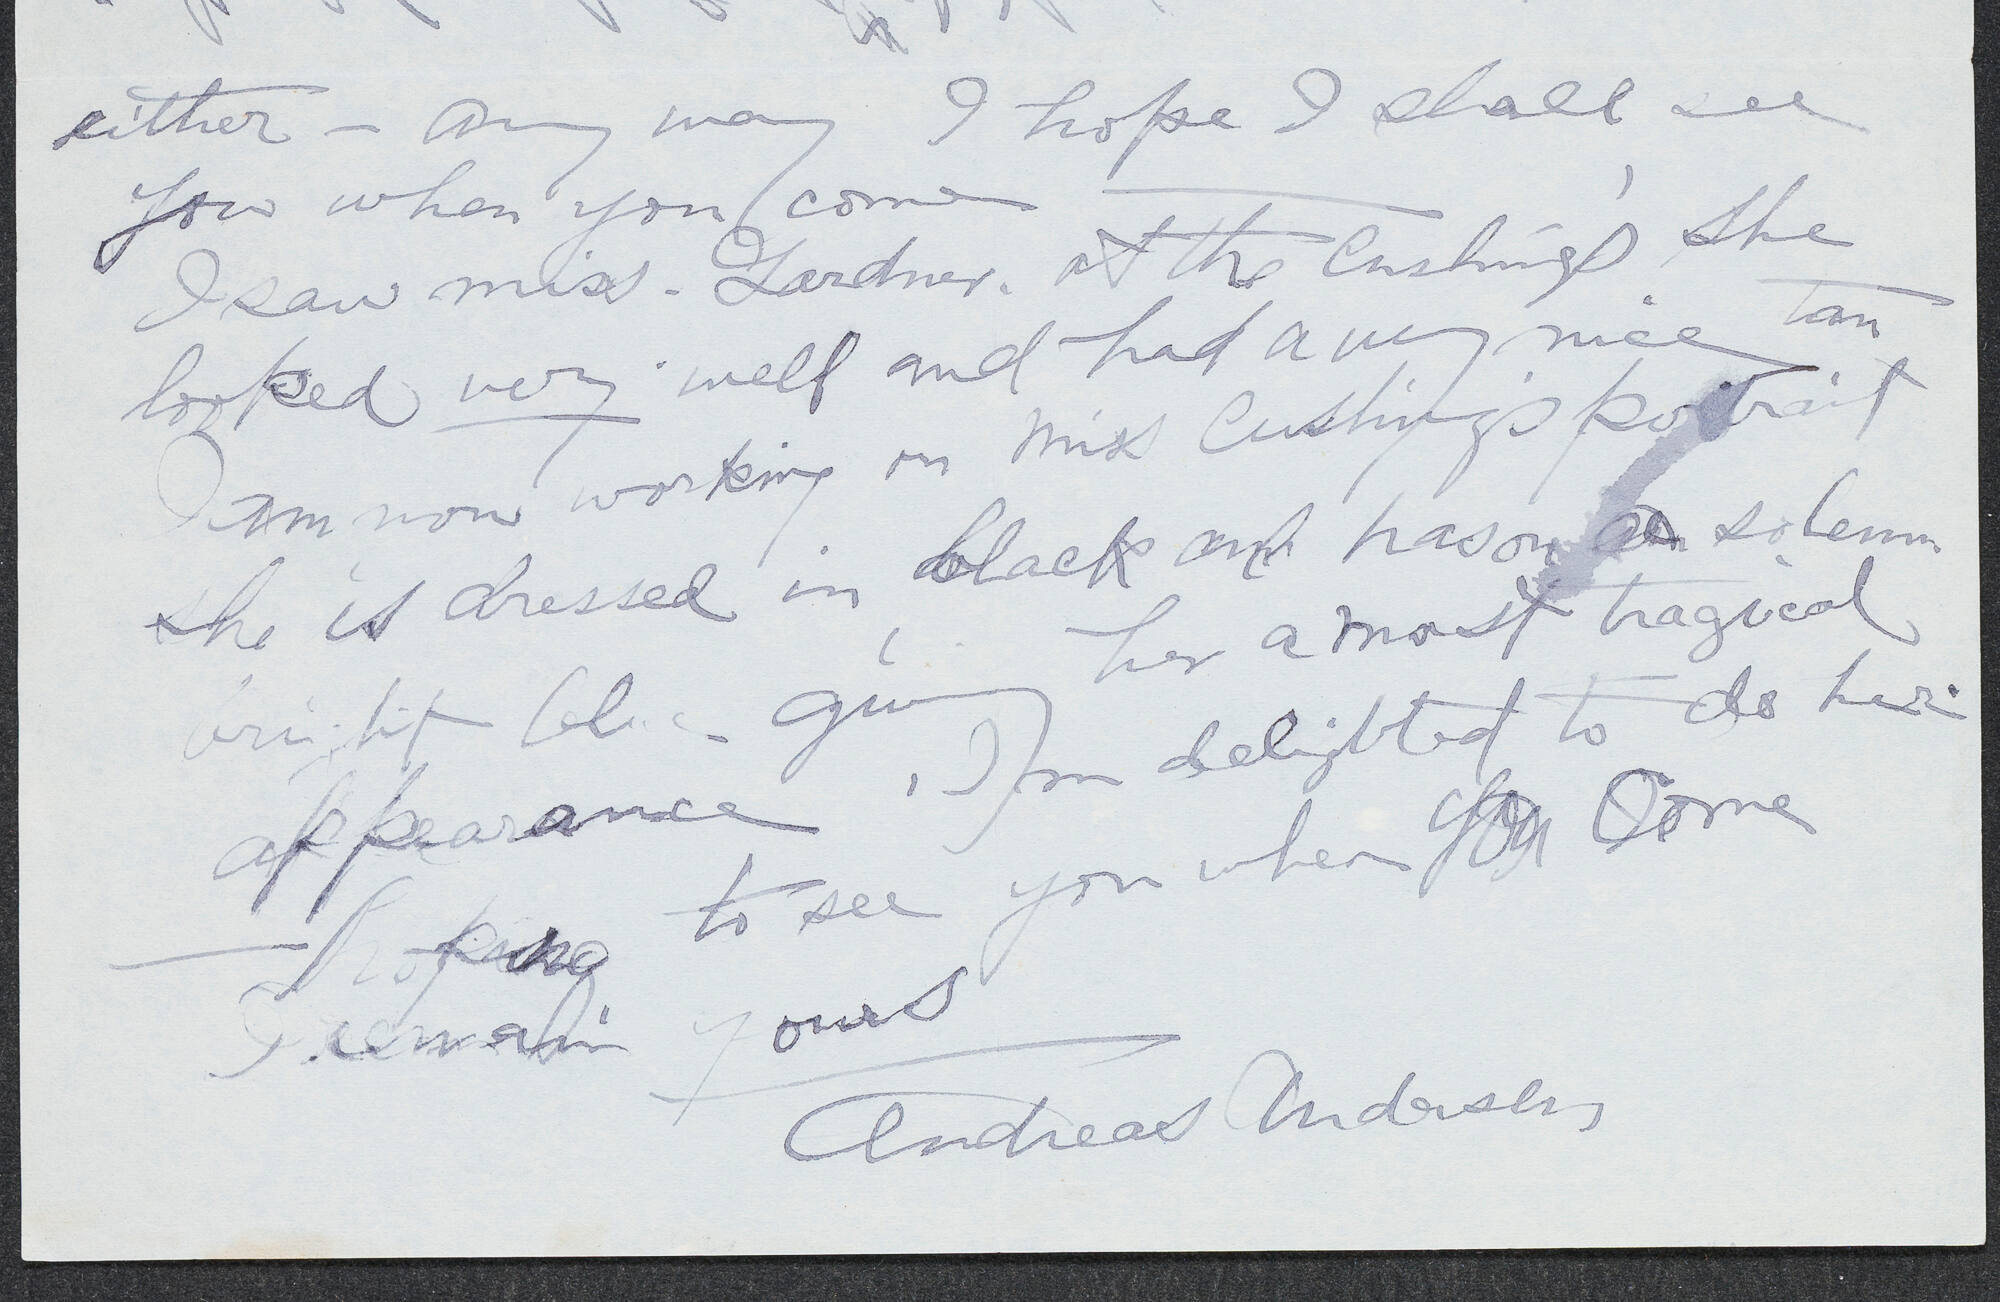 either – any way I hope I shall see
you when you come —
I saw miss. Gardner. at the Cushing's, She
looked very well and had a very nice tan
I am now working on Miss Cushing's portrait
she is dressed in black and has on a solemn
bright giving her a most tragical
appearance, I am delighted to do her
— hoping to see you when you Come
I remain yours
Andreas Andersen